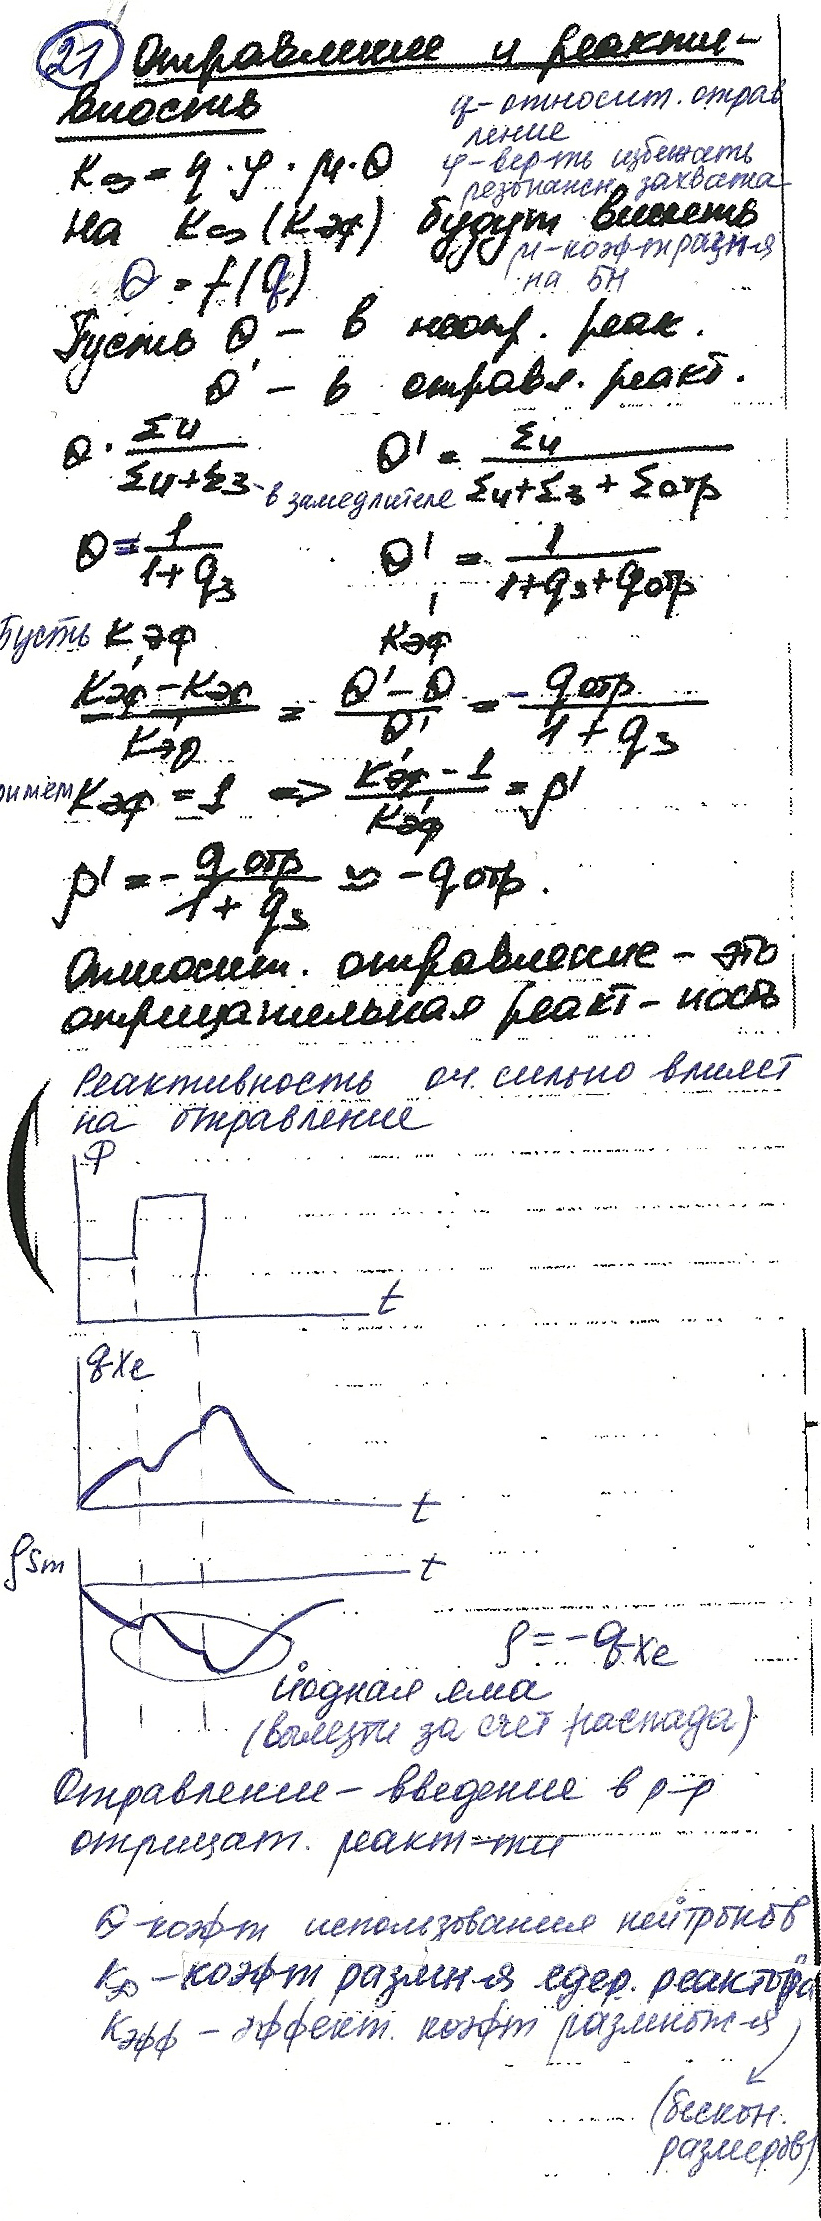 21 Отравление и реакти-
вность
q - относит. отрав
ление
K∞ = q · φ · μ · θ
φ - вер-ть избежать
резонансн. захвата
на K∞ (Kэф) будут влиять
μ - коэфт размн-я
на БН
θ = f(q)
Пусть θ - в неотр. реак.
θ' - в отравл. реакт.
θ · Σu / (Σu+Σз) - в замедлителе
θ' = Σu / (Σu+Σз + Σотр)
θ = 1 / (1+qз)
θ' = 1 / (1+qз+qотр)
Пусть Kэф K'эф
(K'эф - Kэф) / K'эф = (θ' - θ) / θ' = - qотр / (1 + qз)
римем Kэф = 1 => (K'эф - 1) / K'эф = ρ'
ρ' = - qотр / (1 + qз) ≃ - qотр.
Относит. отравление - это
отрицательная реакт-ность
Реактивность оч. сильно влияет
на отравление
Φ
t
qXe
t
ρSm
t
ρ = - qXe
йодная яма
(вылезти за счет распада)
Отравление - введение в р-р
отрицат. реакт-ти
θ - коэфт использования нейтронов
K∞ - коэфт размн-я ядер. реактора
Kэфф - эффект. коэфт размнож-я
(бескон.
размеров)